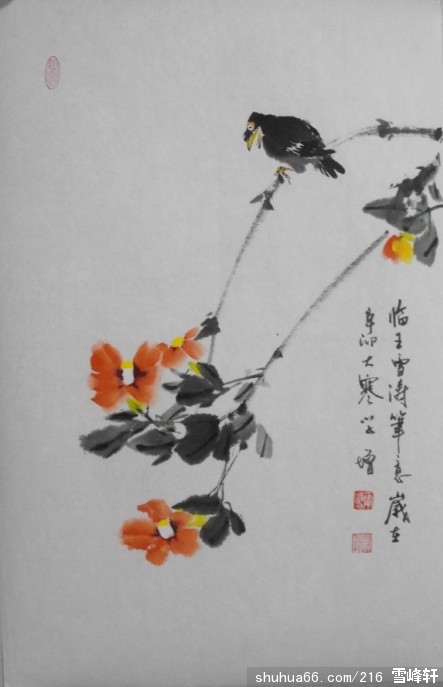 临王雪涛笔意岁在
辛卯大寒
shuhua66.com/216 雪峰轩